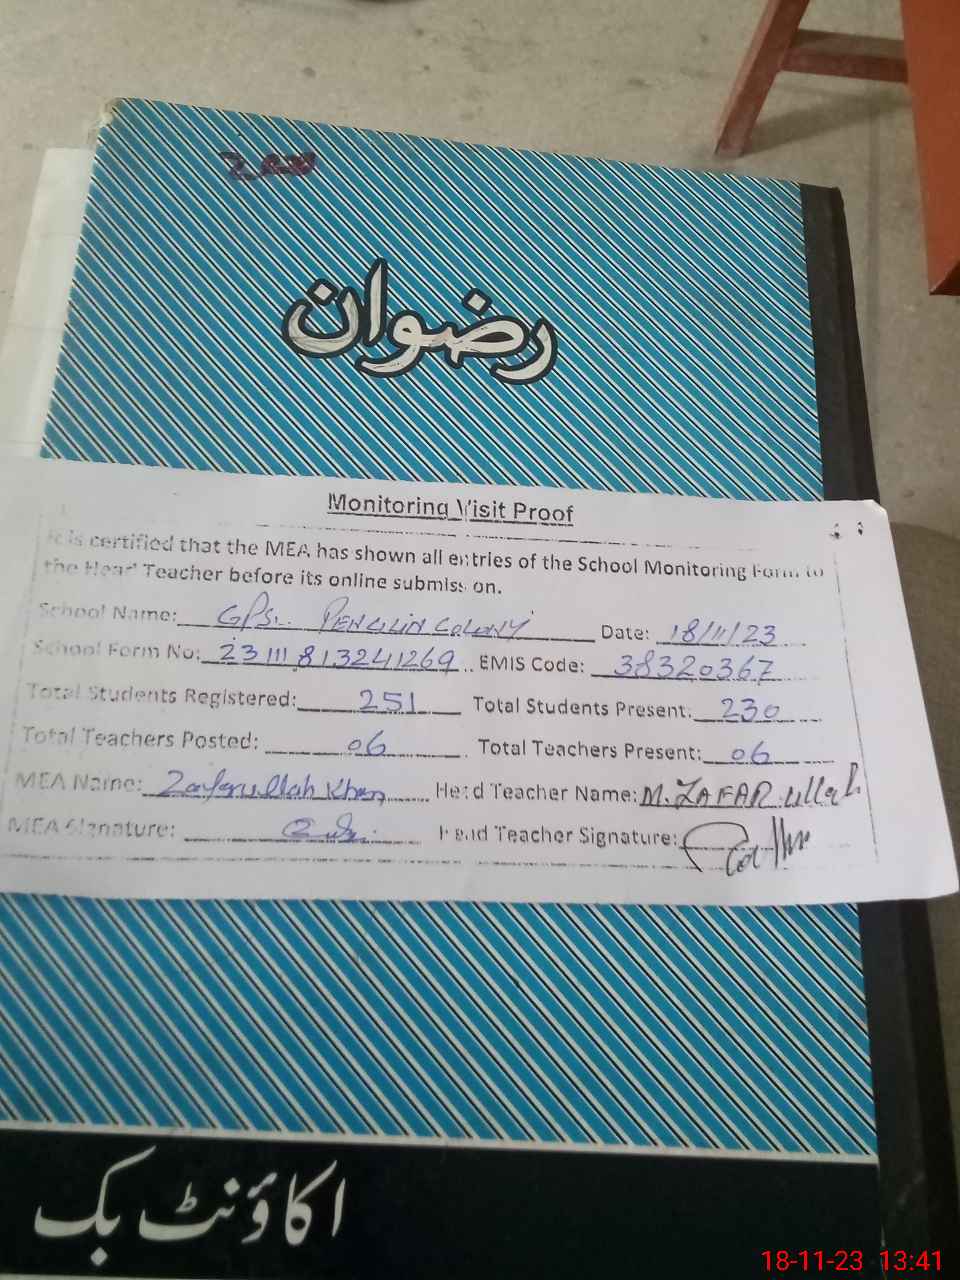 رضوان
Monitoring Visit Proof
It is certified that the MEA has shown all entries of the School Monitoring Form to
the Head Teacher before its online submission.
School Name: GPS.. PENCILIN COLONY Date: 18/11/23
School Form No: 23111813241269 EMIS Code: 38320367
Total Students Registered: 251 Total Students Present: 230
Total Teachers Posted: 06 Total Teachers Present: 06
MEA Name: Zafarullah Khan Head Teacher Name: M. ZAFAR ullah
MEA Signature: Head Teacher Signature:
اکاؤنٹ بک
18-11-23 13:41